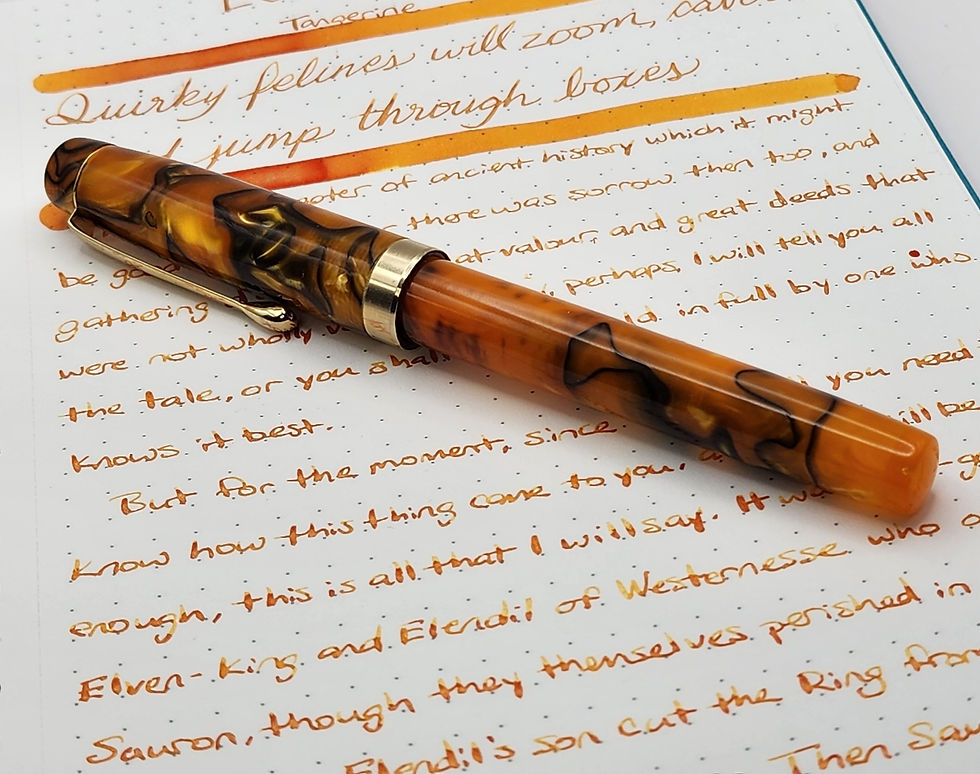 Tangerine
Quirky felines will zoom,
jump through boxes
of ancient history which it might
there was sorrow then too, and
be valour, and great deeds that
gathering perhaps, I will tell you all
were not wholly in full by one who
the tale, or you shall
knows it best. you need
But for the moment, since will be
know how this thing came to you,
enough, this is all that I will say. It
Elven-King and Elendil of Westernesse who
Sauron, though they themselves perished in
Elendil's son cut the Ring from
Then